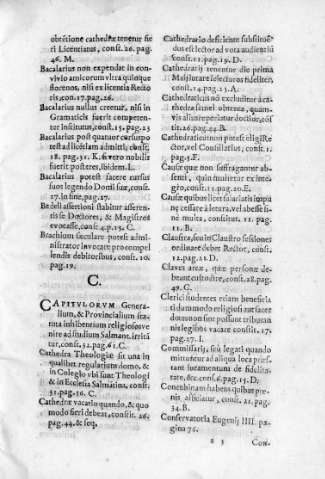 obtẽtione cathedræ tenetur fie
ri Licentiatus, const. 26. pag.
46. M.
Bacalarius non expendat in con
vivio amicorum ultra quinque
florenos, nisi ex licentia Recto
ris, con. 17. pag. 26.
Bacalarius nullus creetur, nisi in
Gramaticis fuerit competen-
ter institutus, const. 15. pag. 25
Bacalarius post quatuor cursus po
test ad licentiam admitti, const.
18. pag. 31. K. si vero nobilis
fuerit post tres, ibidem. L.
Bacalarius potest facere cursus
suos legendo Domi suæ, const.
17. in fine, pag. 17.
Bedelli assertioni stabitur asseren-
tis se Doctores, & Magistros
evocasse, const. 4. p. 15. C.
Brachium seculare potest admi-
nistrator invocare pro compel
lendis debitoribus, const. 10.
pag. 19.
C.
CAPITULORUM Genera-
lium, & Provincialium sta-
tuta inhibentium religiosos ve
nire ad studium Salmant. irrita
tur, const. 32. pag. 61. C.
Cathedra Theologiæ sit una in
qualibet regularium domo, &
in Colegio ubi sunt Theologi
& in Ecclesia Salmãtina, const.
31. pag. 50. C.
Cathedræ vacatio quando, & quo
modo fieri debeat, constit. 26.
pag. 44. & seq.
Cathedrario deficiente substitẽ-
dus est lector ad vota audientiũ
const. 11. pag. 19. D.
Cathedrarij tenentur die prima
Majis jurare se lecturos fideliter,
const. 14. pag. 23. A.
Cathedraticus non excluditur à
cathedra semel obtenta, quam-
vis alius reperiatur doctior, cõs
tit. 26. pag. 44. B.
Cathedraticus non potest eligi Re-
ctor, vel Consiliarius, const. 1.
pag. 5. F.
Causæ quæ non suffragantur ab
senti, quin multetur ex inte-
gro, const. 13. pag. 20. E.
Causæ quibus licet salariatis impu
nè cessare à lectura, vel abesse si-
ne multa, constitut. 12. pag.
11. B.
Claustra, seu in Claustro sessiones
ordinare debet Rector, const.
12. pag. 21. D.
Claves arcæ, quæ personæ de-
beant custodire, const. 28. pag.
49. C.
Clerici studentes etiam beneficia
ti dummodo religiosi nõ sint
dominorum suo possunt tribuna
nis legibus vacare constit. 17.
pag. 27. I.
Commissarij, seu legati quando
mittuntur ad aliqua loca præs-
tant juramentum de fidelita-
te, &c. const. 6. pag. 15. D.
Concubinam habens quibus pœ-
nis afficiatur, const. 21. pag.
34. B.
Conservatoria Eugenij IIII. pa-
gina 76.
Con-